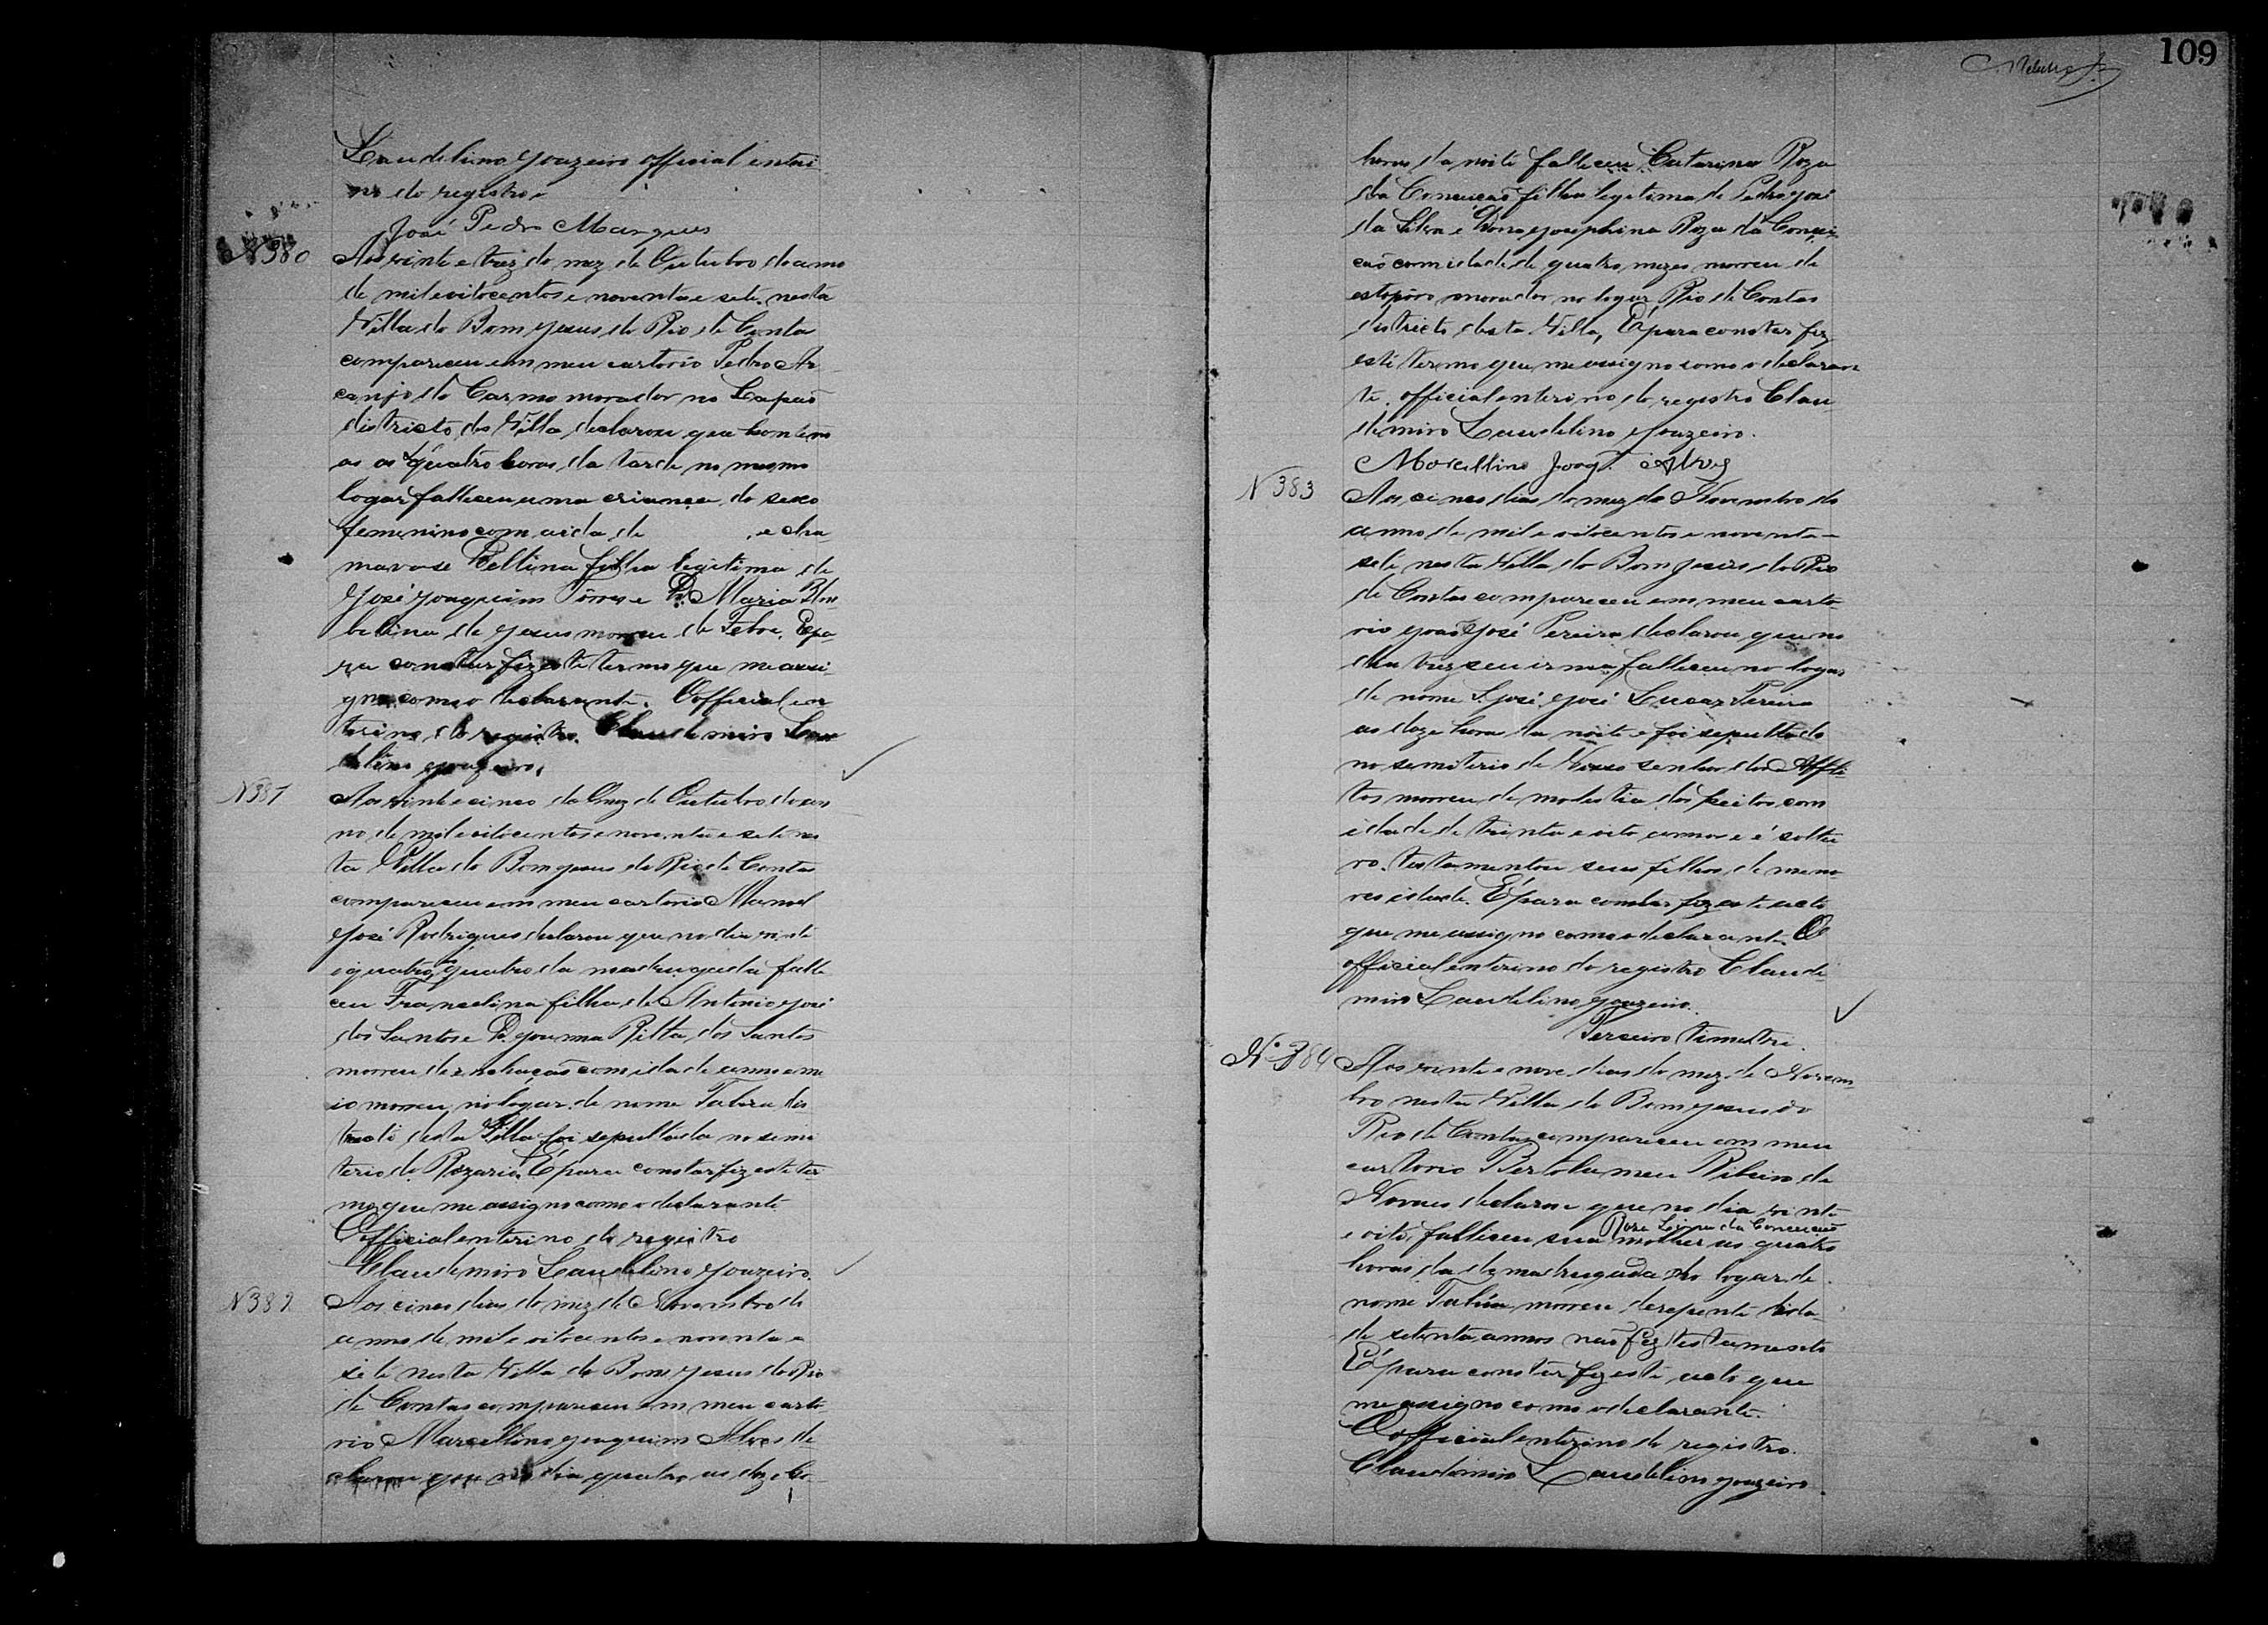 Laudelino Joazeiro official enteri
no do registro.
José Pedro Marques
N 380
Aos vinte e trez do mez de Outubro do anno
de mil e oitocentos e noventa e sete nesta
Villa do Bom Jesus do Rio de Conta
compareceu em meu cartorio Pedro Ar
canjo do Carmo morador no Capaõ
districto da Villa, declarou que hontem
as as quatro horas da tarde no mesmo
logar falleceu uma criança do sexo
feminino com aida de , e cha
mava-se Bellina filha legitima de
José Joaquim Torres e D. Maria
belina de Jesus morreu de Febre. E pa
ra constar fiz este termo que me assi
gno como o declarante. O official en
terino do registro. Claudemiro Lau
delino Joazeiro.
N 381
Aos vinte e cinco do mez de Outubro do an
no de mil e oitocentos e noventa e sete nes
ta Villa do Bom Jesus do Rio de Contas
compareceu em meu cartorio Manoel
José Rodrigues declarou que no dia vinte
e quatro, quatro da madrugada falle
ceu Francelina filha de Antonio José
dos Santos e D. Joanna Ritta dos Santos
morreu de enchaçaõ com idade anno e me
io morreu, no logar de nome Tabua dis
tricto desta Villa foi sepultada no semi
terio do Rozario. E para constar fiz este ter
mo que me assigno como o declarante
O official enterino do registro
Claudemiro Laudelino Joazeiro.
N 382
Aos cinco dias do mez de Novembro do
anno de mil e oitocentos e noventa e
sete nesta Villa do Bom Jesus do Rio
de Contas compareceu em meu carto
rio Marcellino Joaquim Alves de
clarou que no dia quatro as doze ho
109
horas da noite falleceu Catarina Roza
da Conceicaõ filha legitima de Pedro José
da Silva e Dona Josephina Roza da Concei
caõ com idade de quatro mezes morreu de
estopôro morador no logar Rio de Contas
districto desta Villa, E para constar fiz
este termo que me assigno como o declaran
te. official enterino do registro Clau
demiro Laudelino Joazeiro.
Marcellino Joaqm. Alves
N 383
Aos cinco dias do mez de Novembro do
anno de mil e oitocentos e noventa e
sete nesta Villa do Bom Jesus do Rio
de Contas compareceu em meu carto
rio Joaõ José Pereira declarou que no
dia trez seu irmaõ falleceu no logar
de nome S. José José Lucas Pereira
as doze horas da noite e foi sepultado
no semiterio de Nosso senhor dos Affli
tos morreu de molestia dos peitos com
idade de trinta e oito annos e é soltei
ro. testamentou seus filhos de meno
res idade. E para constar fiz este acto
que me assigno como o declarante. O
official enterino do registro Claude
miro Laudelino Joazeiro.
Terceiro timestre.
Nº 384
Aos vinte e nove dias do mez de Novem
bro nesta Villa do Bom Jesus do
Rio de Contas compareceu em meu
cartorio Bertolameu Ribeiro de
Novaes declarou que no dia vinte
Roza Lima da Conceicaõ
e oito, falleceu sua molher as quatro
horas da da madrugada no logar de
nome Tabúa morreu derepente
de setenta annos naõ fez testamento
E para constar fiz este acto que
me assigno como o declarante.
O official enterino do registro.
Claudimiro Laudelino Joazeiro